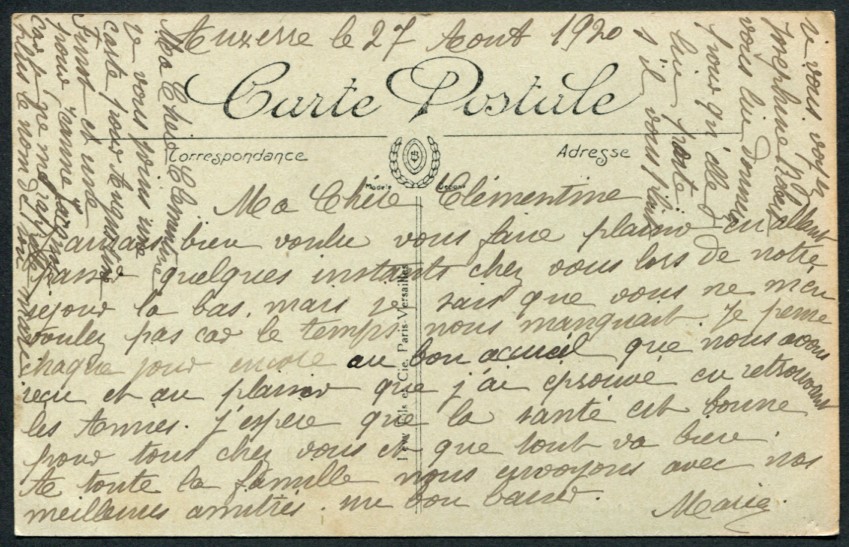 Auxerre le 27 Aout 1920
Carte Postale
Correspondance
Adresse
Modèle Déposé
Ma Chère Clémentine
J'aurais bien voulu vous faire plaisir en allant
passer quelques instants chez vous lors de notre
sejour la bas. mais je sais que vous ne m'en
voulez pas car le temps nous manquait. Je pense
chaque jour encore au bon acceuil que nous avons
reçu et au plaisir que j'ai eprouvé en retrouvant
les Amies. J'espere que la santé est bonne
pour tous chez vous et que tout va bien.
De toute la famille nous envoyons avec nos
meilleures amitiés. un bon baiser.
Marie.
et Cie, Paris-Versailles
Ma Chère Clémentine
Je vous joins une
carte pour Augustine
et une
pour Jeanne
car je ne me rappelle
plus le nom de son mari
Si vous voyez
Josephine
vous lui donnez
pour qu'elle
lui porte
s'il vous plait